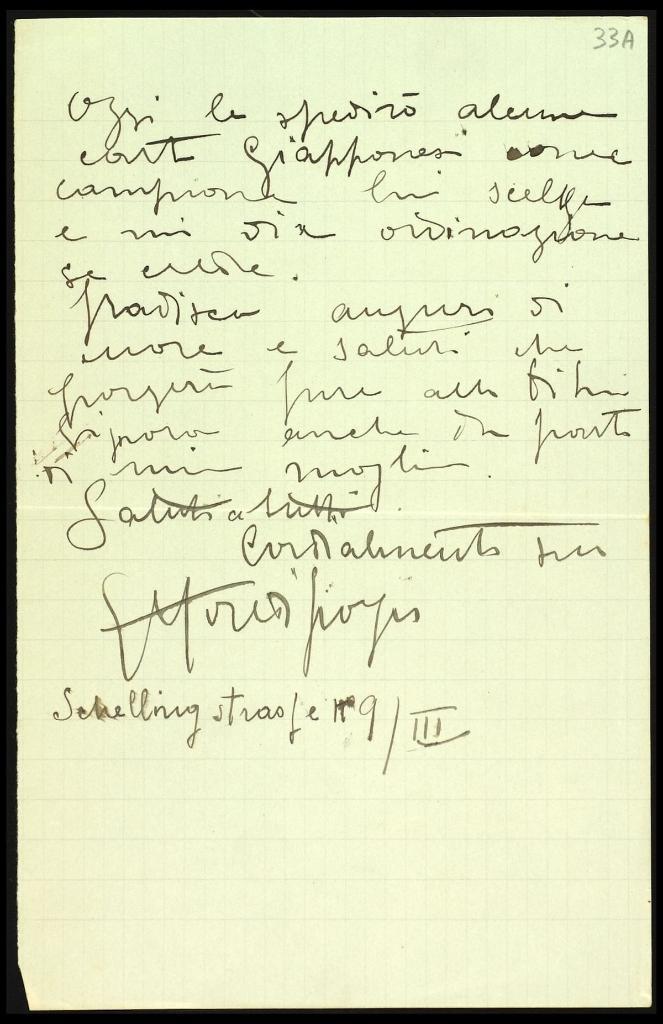 33A
Oggi le spedirò alcune
carte Giapponesi come
campione lui scelga
e mi dia ordinazione
se crede.
Gradisca auguri di
cuore e saluti che
porgerà pure alla
Signora anche da parte
di mia moglie.
Saluti a tutti.
Cordialmente suo
Schellingstrasse No 9/III